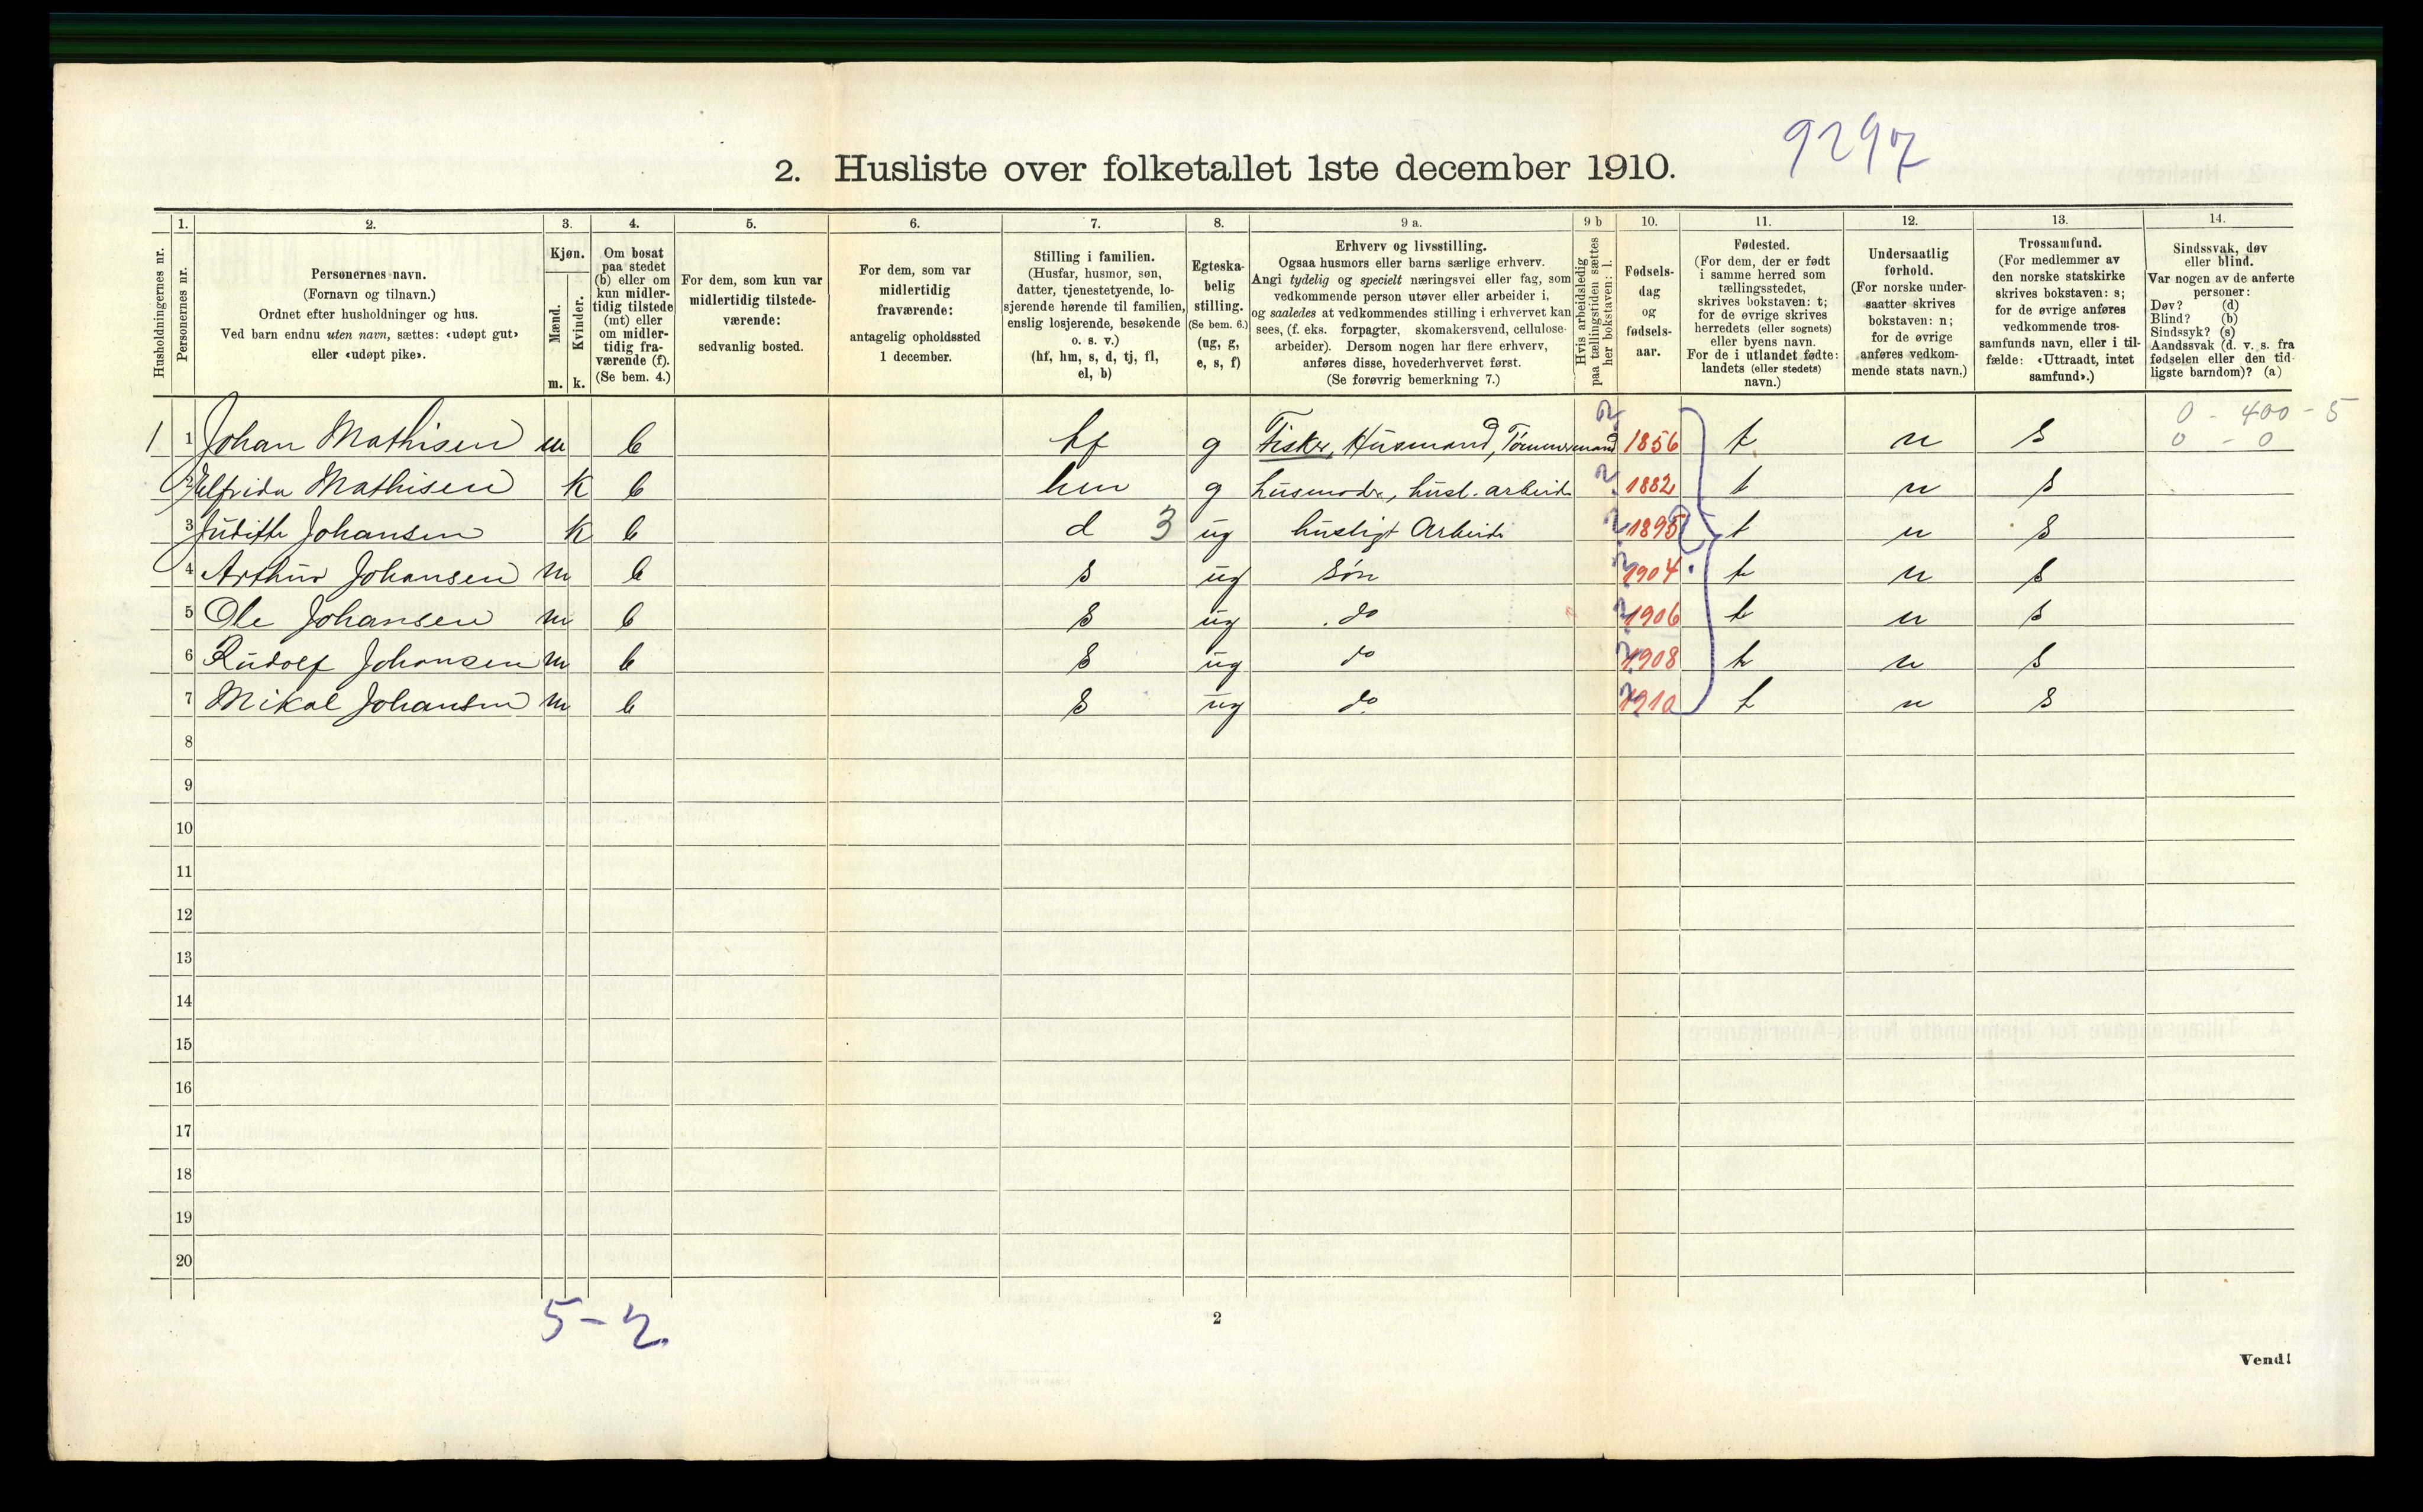 9297
2. Husliste over folketallet 1ste december 1910.
Husholdningernes nr.
1.
Personernes nr.
2.
Personernes navn.
(Fornavn og tilnavn.)
Ordnet efter husholdninger og hus.
Ved barn endnu uten navn, sættes: «udøpt gut»
eller «udøpt pike».
3.
Kjøn.
Mænd.
Kvinder.
m. k.
4.
Om bosat
paa stedet
(b) eller om
kun midler-
tidig tilstede
(mt) eller
om midler-
tidig fra-
værende (f).
(Se bem. 4.)
5.
For dem, som kun var
midlertidig tilstede-
værende:
sedvanlig bosted.
6.
For dem, som var
midlertidig
fraværende:
antagelig opholdssted
1 december.
7.
Stilling i familien.
(Husfar, husmor, søn,
datter, tjenestetyende, lo-
sjerende hørende til familien,
enslig losjerende, besøkende
o. s. v.)
(hf, hm, s, d, tj, fl,
el, b)
8.
Egteska-
belig
stilling.
(Se bem. 6.)
(ug, g,
e, s, f)
9 a.
Erhverv og livsstilling.
Ogsaa husmors eller barns særlige erhverv.
Angi tydelig og specielt næringsvei eller fag, som
vedkommende person utøver eller arbeider i,
og saaledes at vedkommendes stilling i erhvervet kan
sees, (f. eks. forpagter, skomakersvend, cellulose-
arbeider). Dersom nogen har flere erhverv,
anføres disse, hovederhvervet først.
(Se forøvrig bemerkning 7.)
9 b
Hvis arbeidsledig
paa tællingstiden sættes
her bokstaven: l.
10.
Fødsels-
dag
og
fødsels-
aar.
11.
Fødested.
(For dem, der er født
i samme herred som
tællingsstedet,
skrives bokstaven: t;
for de øvrige skrives
herredets (eller sognets)
eller byens navn.
For de i utlandet fødte:
landets (eller stedets)
navn.)
12.
Undersaatlig
forhold.
(For norske under-
saatter skrives
bokstaven: n;
for de øvrige
anføres vedkom-
mende stats navn.)
13.
Trossamfund.
(For medlemmer av
den norske statskirke
skrives bokstaven: s;
for de øvrige anføres
vedkommende tros-
samfunds navn, eller i til-
fælde: «Uttraadt, intet
samfund».)
14.
Sindssvak, døv
eller blind.
Var nogen av de anførte
personer:
Døv? (d)
Blind? (b)
Sindssyk? (s)
Aandssvak (d. v. s. fra
fødselen eller den tid-
ligste barndom)? (a)
0 - 400 - 5
1 1 Johan Mathisen m b hf g Fisker, Husmand, Tømmermand 1856 t n s 0 - 0
2 Elfrida Mathisen k b hm g husmoder, husl. arbeide 1882 t n s
3 Judith Johansen k b d 3 ug husligt Arbeide 1895 t n s
4 Arthur Johansen m b s ug Søn 1904 t n s
5 Ole Johansen m b s ug do 1906 t n s
6 Rudolf Johansen m b s ug do 1908 t n s
7 Mikal Johansen m b s ug do 1910 t n s
8
9
10
11
12
13
14
15
16
17
18
19
20
5 - 2
2
Vend!